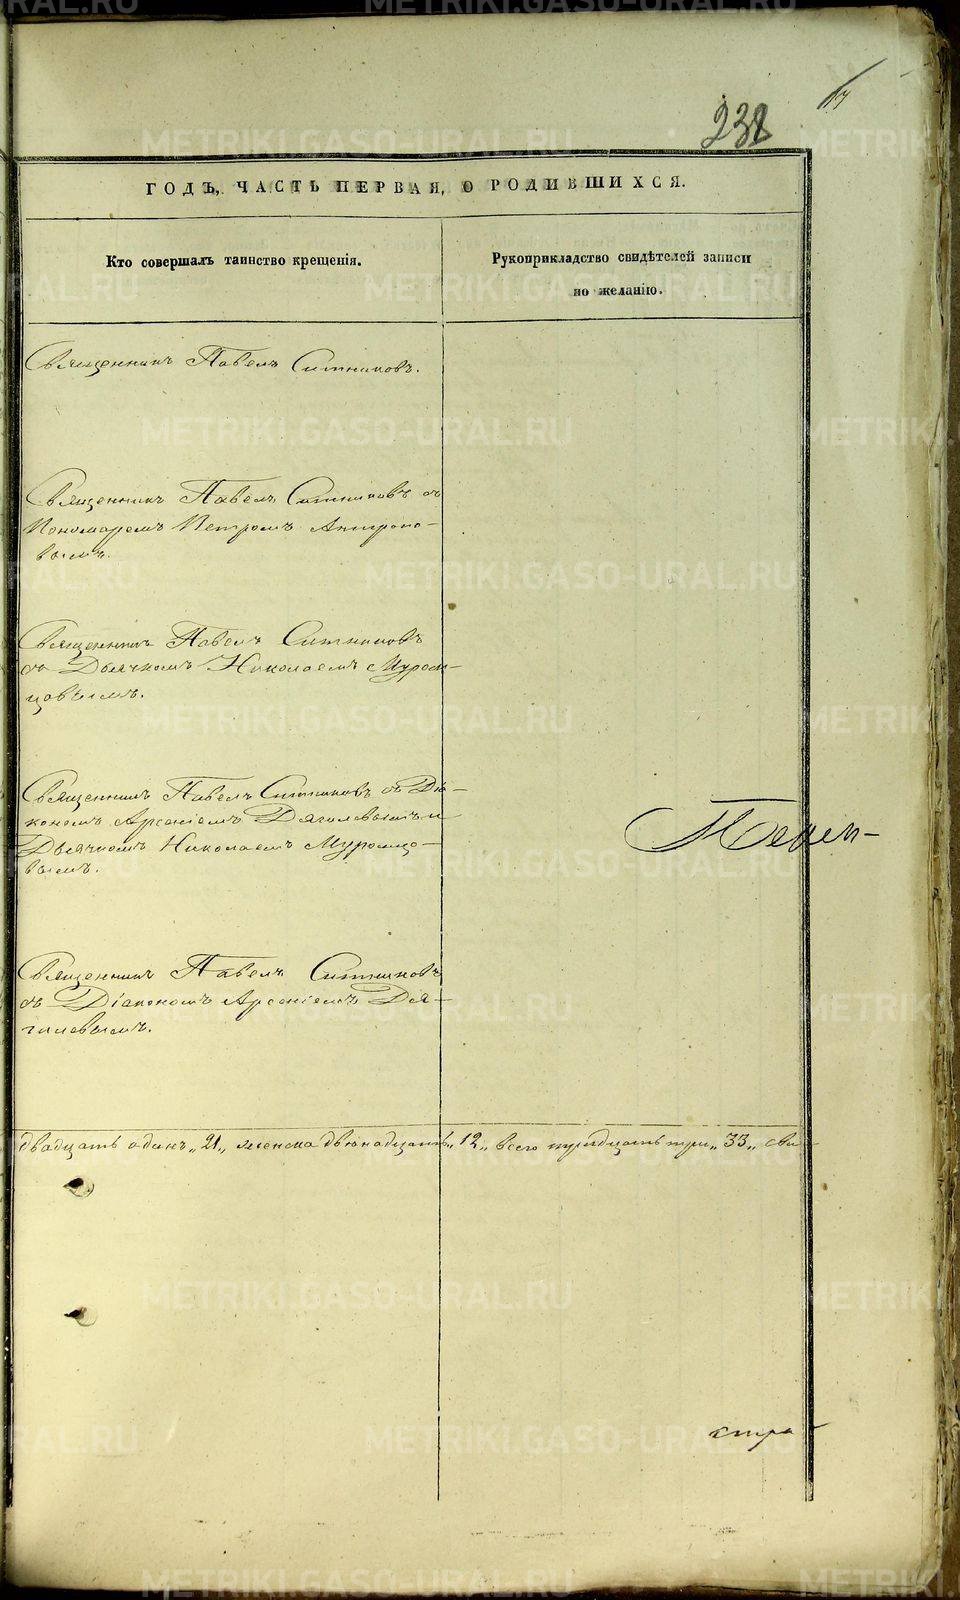 238
17
ГОДЪ, ЧАСТЬ ПЕРВАЯ, О РОДИВШИХСЯ.
Кто совершалъ таинство крещенія.
Рукоприкладство свидѣтелей записи
по желанію.
Священникъ Павелъ Ситниковъ.
Священникъ Павелъ Ситниковъ съ
Пономаремъ Петромъ Антропо-
вымъ.
Священникъ Павелъ Ситниковъ
съ Дьячкомъ Николаемъ Муром-
цовымъ.
Священникъ Павелъ Ситниковъ съ Діа-
кономъ Арсеніемъ Дягилевымъ и
Дьячкомъ Николаемъ Муромцо-
вымъ.
Священникъ Павелъ Ситниковъ
съ Діакономъ Арсеніемъ Дя-
гилевымъ.
двадцать одинъ „21„ женска двенадцать „12„ всего тридцать три „33„ сви-
стра-
METRIKI.GASO-URAL.RU